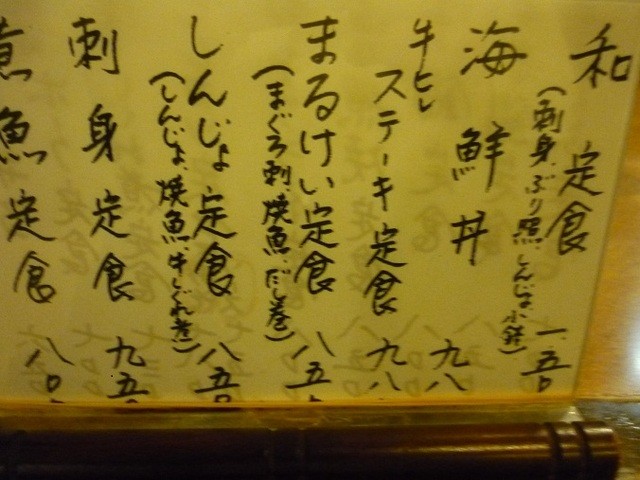 和定食
(刺身、ぶり照、しんじょ、小鉢) 一、五〇
海鮮丼 九八
牛ヒレステーキ定食 九八
まるけい定食 八五
(まぐろ刺、焼魚、だし巻)
しんじょ定食 八五〇
(しんじょ、焼魚、牛しぐれ煮)
刺身定食 九五〇
煮魚定食 八〇